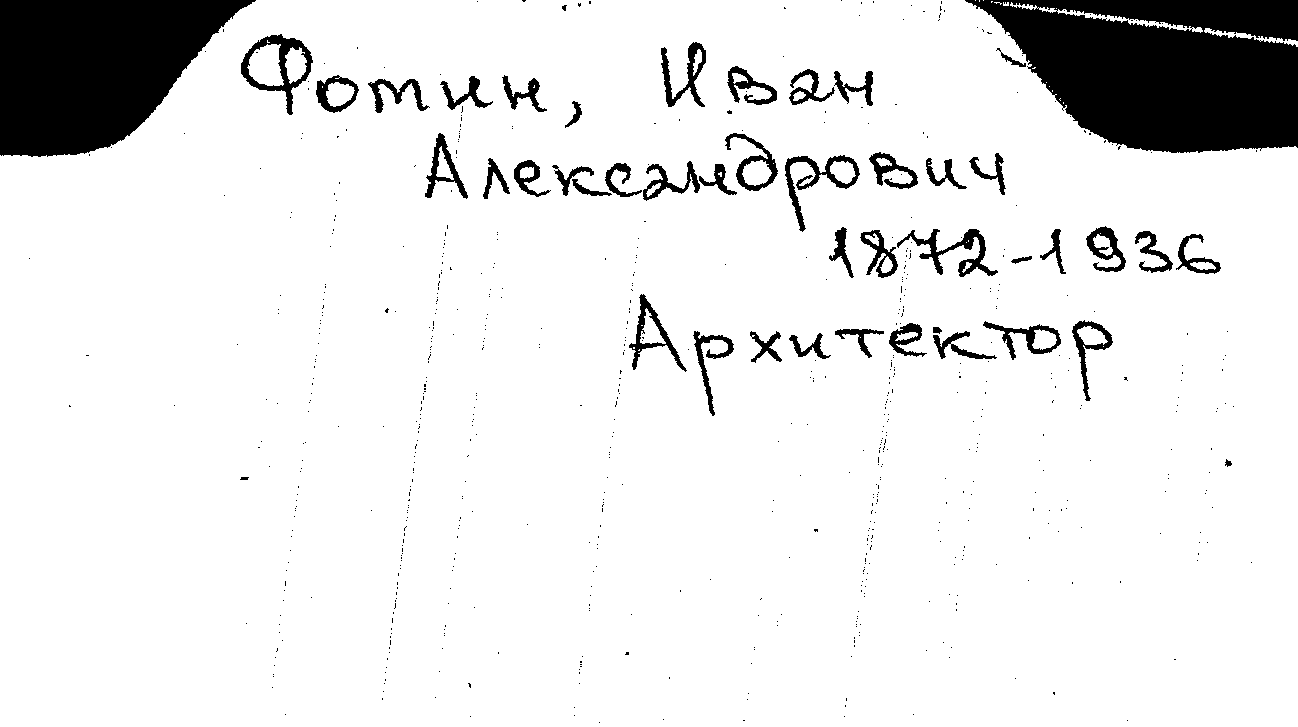 Фотин, Иван
Александрович
1872-1936
Архитектор